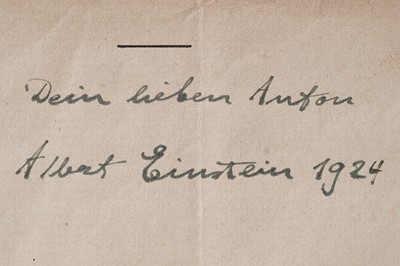 Dein lieben Anton
Albert Einstein 1924